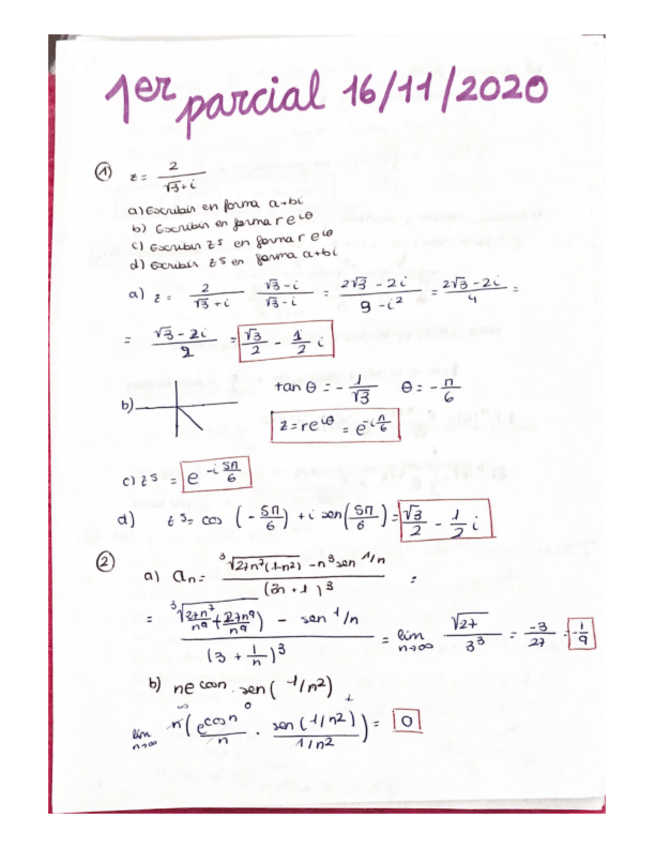 1er parcial 16/11/2020
① z = 2/(√3+i)
a) Escribir en forma a+bi
b) Escribir en forma re^iθ
c) Escribir z^5 en forma re^iθ
d) Escribir z^5 en forma a+bi
a) z = 2/(√3+i) (√3-i)/(√3-i) = (2√3-2i)/(9-i²) = (2√3-2i)/4 =
= (√3-2i)/2 = √3/2 - 1/2 i
b) tan θ = -1/√3 θ = -π/6
z = re^iθ = e^-iπ/6
c) z^5 = e^-i5π/6
d) z^5 = cos (-5π/6) + i sen(5π/6) = √3/2 - 1/2 i
② a) an = (³√(27n⁷(1-n²)) - n³ sen 1/n)/(3n+1)³ =
= (³√(27n⁷/n⁹ + 27n⁹/n⁹) - sen 1/n)/(3+1/n)³ = lim n→∞ √27/3³ = -3/27 = -1/9
b) ne^cosn · sen(1/n²)
lim n→∞ n(e^cosn/n · sen(1/n²)/(1/n²)) = 0